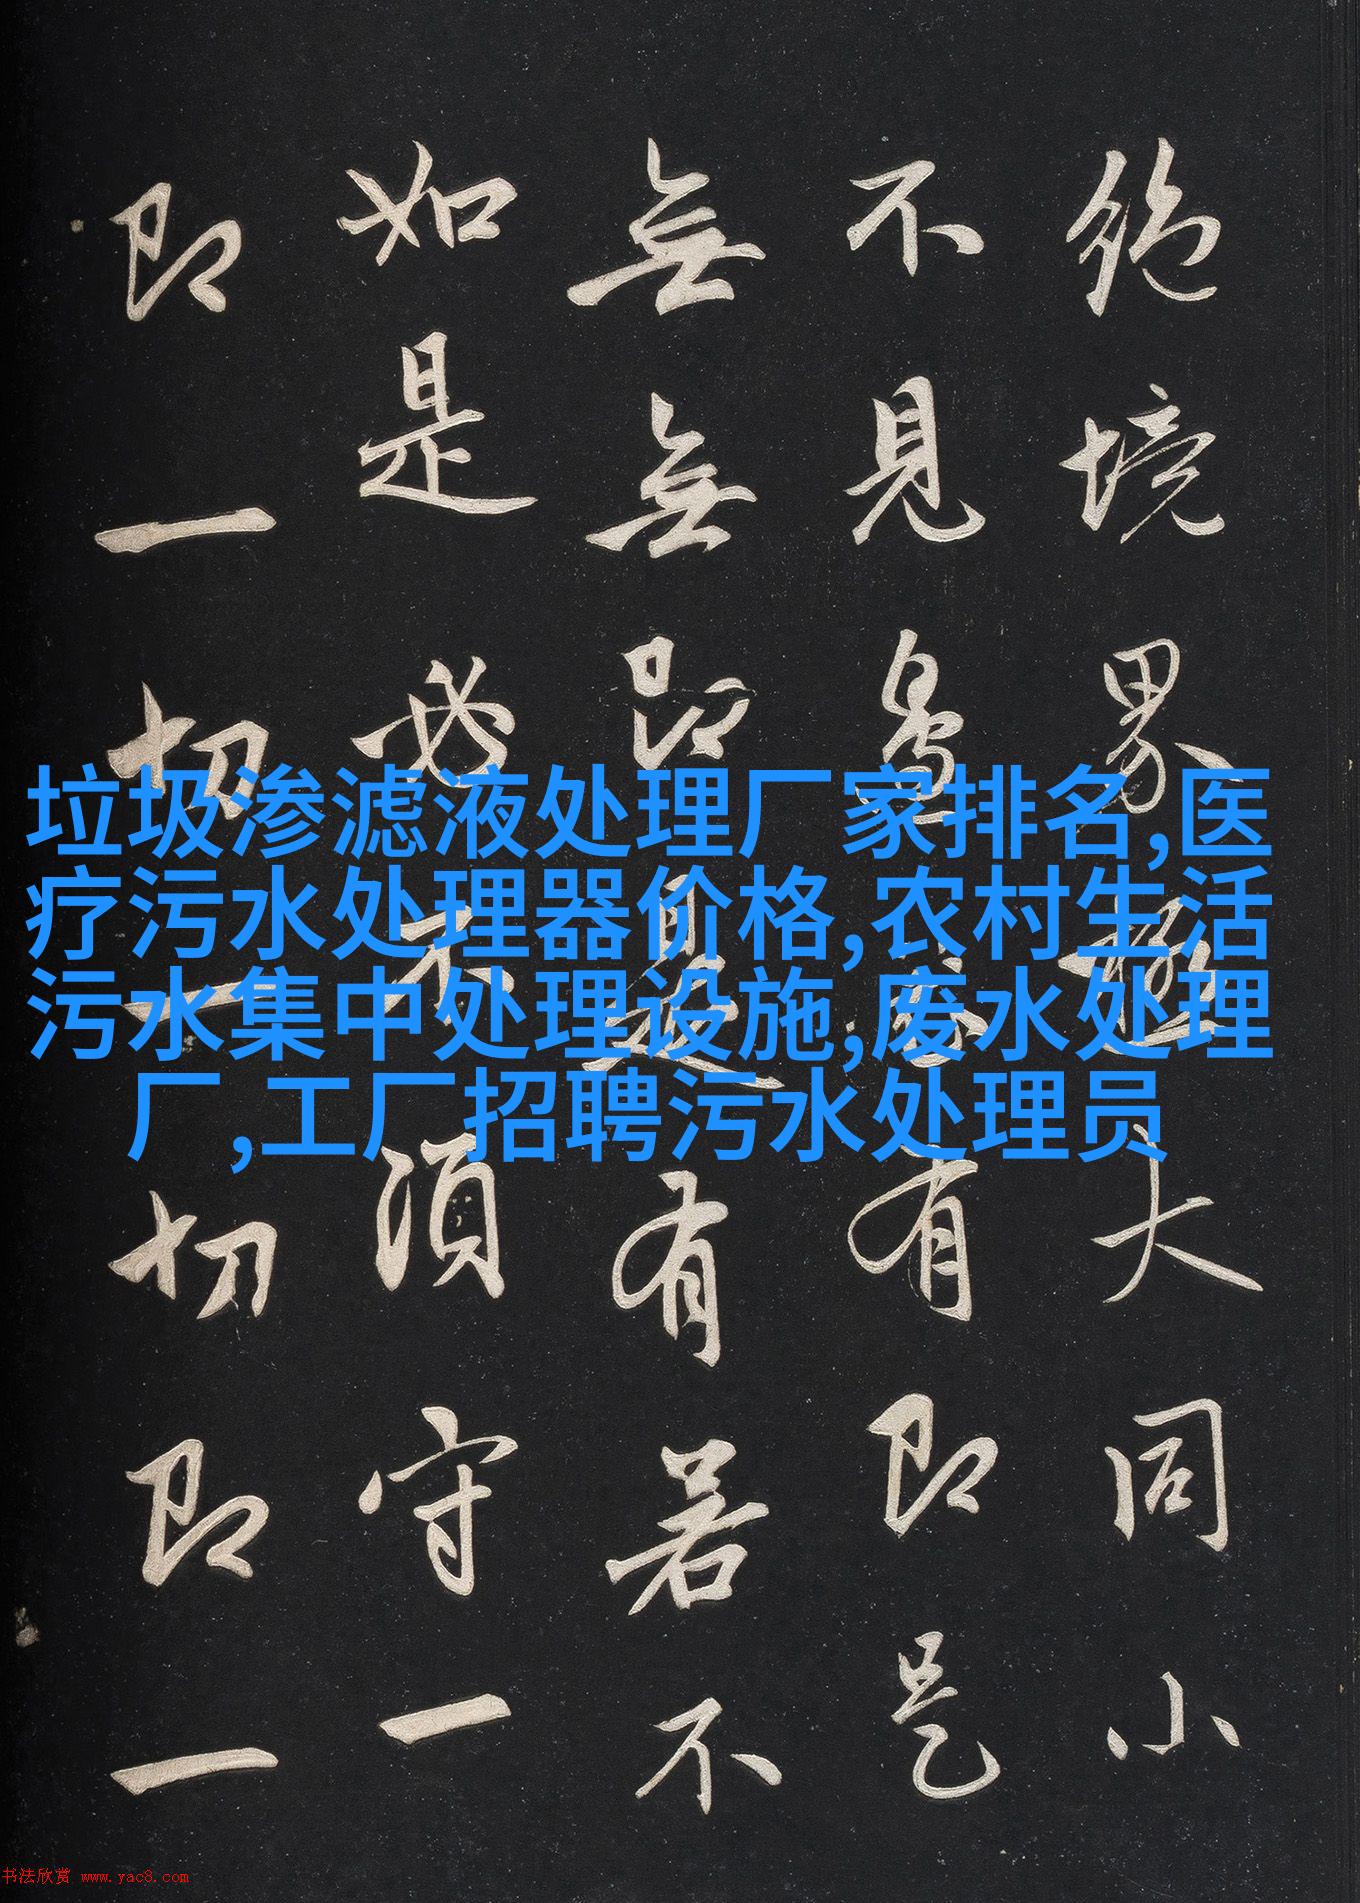 絶境界極大同小
不見邊有即是
無無即是有若不
如是必不須守一
即一切一切即一
垃圾渗滤液处理厂家排名,医
疗污水处理器价格,农村生活
污水集中处理设施,废水处理
厂,工厂招聘污水处理员
书法欣赏 www.yac8.com